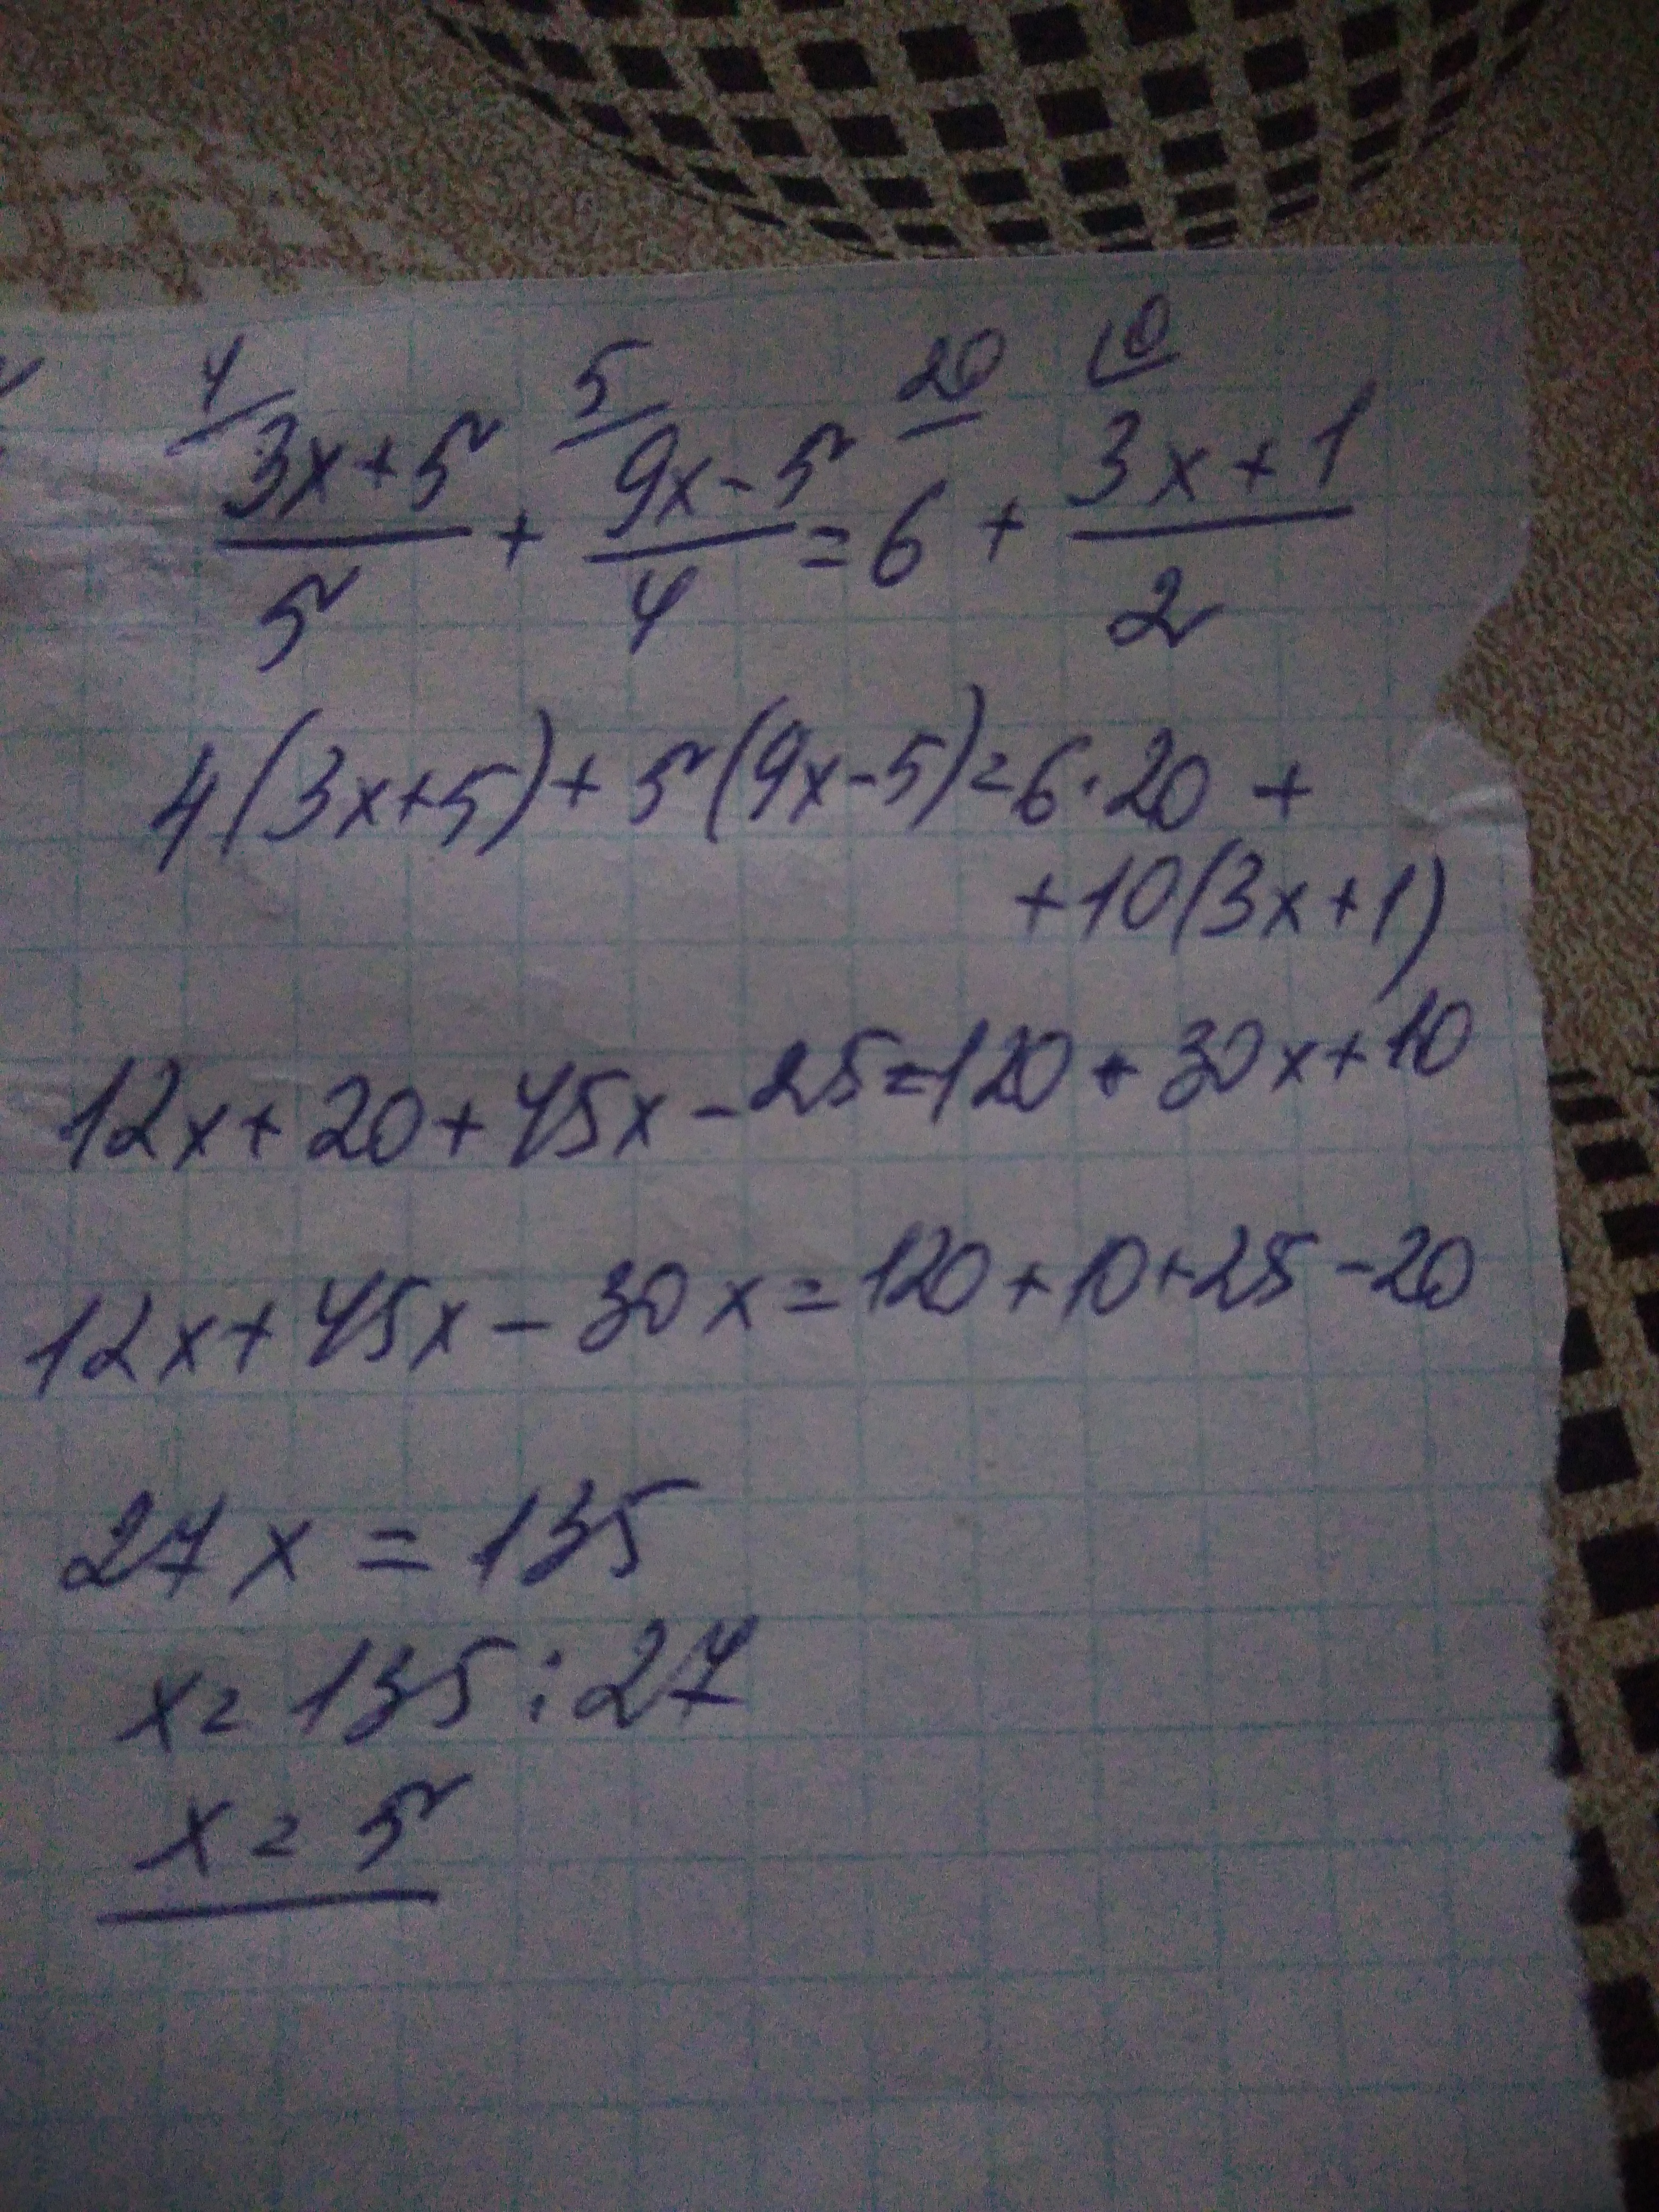 4 5 20 10
3x+5 / 5 + 9x-5 / 4 = 6 + 3x+1 / 2
4(3x+5)+5(9x-5)=6·20 +
+10(3x+1)
12x+20+45x-25=120+30x+10
12x+45x-30x=120+10+25-20
27x=135
x=135:27
x=5